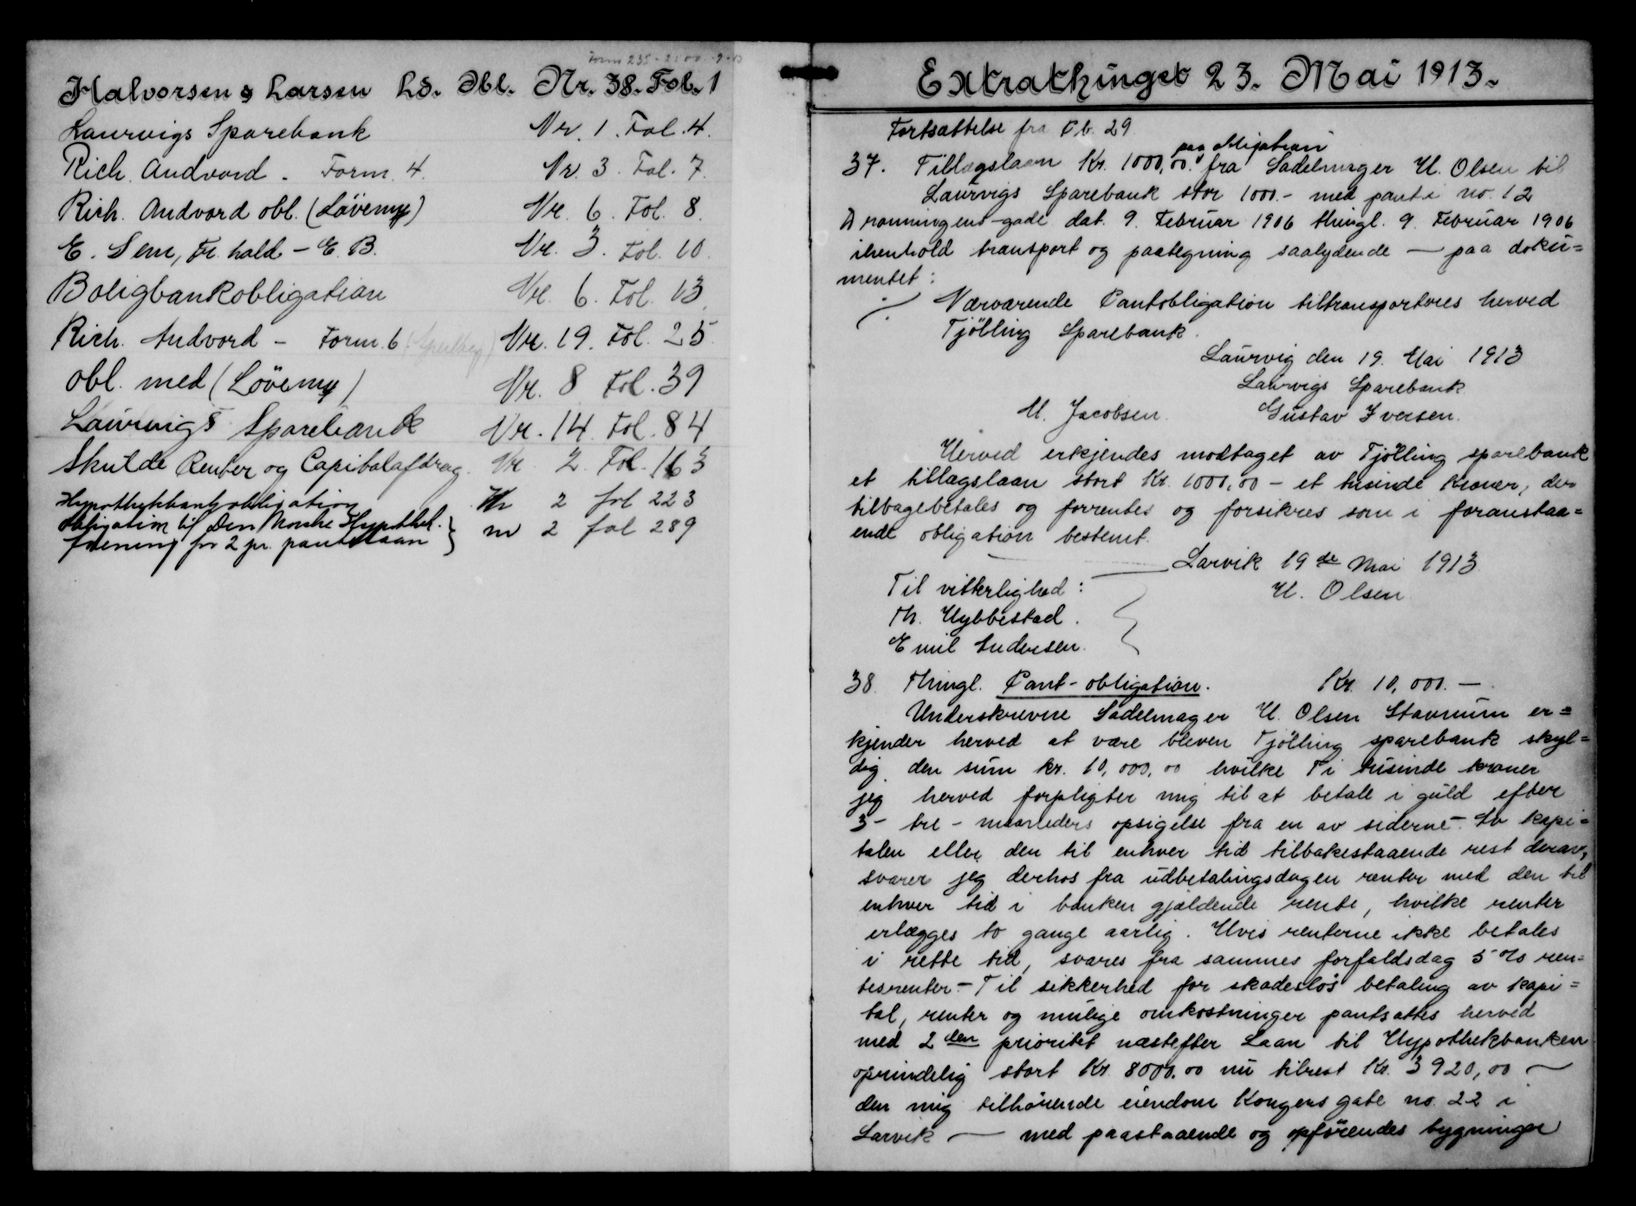 Halvorsen & Larsen Ld. Obl. Nr. 38. Fol. 1
Laurvigs Sparebank Nr. 1. Fol. 4.
Rich. Andvord - Form. 4. Nr. 3. Fol. 7.
Rich. Andvord obl. (Løvemy) Nr. 6. Fol. 8.
E. Sem, Fr.hald - E. B. Nr. 3. Fol. 10
Boligbankobligation Nr. 6. Fol. 13.
Rich. Andvord - Form. 6 Nr. 19. Fol. 25
obl. med (Løvemy) Nr. 8 Fol. 39
Laurvigs Sparebank Nr. 14. Fol. 84
Skulde Renter og Capitalafdrag. Nr 2 Fol. 163
Hypothekbankobligation Nr 2 fol 223
Obligation til Den Norske Hypothek-
forening for 2 pr. pantelaan } nr 2 fol 289
Extrathinget 23. Mai 1913.
Fortsættelse fra P.b. 29
paa obligation
37. Tillægslaan Kr. 1000,00 fra Sadelmager H. Olsen til
Laurvigs Sparebank stor 1000.- med pant i no. 12
Dronningens gade dat. 9. Februar 1906 thingl. 9. Februar 1906
ihenhold transport og paategning saalydende — paa doku=
mentet:
./. Nærværende Pantobligation tiltransporteres herved
Tjölling Sparebank.
Laurvig den 19. Mai 1913
Laurvigs Sparebank
M. Jacobsen. Gustav Iversen.
Herved erkjendes modtaget av Tjölling sparebank
et tillægslaan stort Kr. 1000,00 - et tusinde Kroner, der
tilbagebetales og forrentes og forsikres som i foranstaa=
ende obligation bestemt.
Larvik 19de Mai 1913
Til vitterlighed: H. Olsen
Th. Hybbestad.
Emil Andersen.
38. Thingl. Pant-obligation. Kr. 10,000. —
Underskrevne Sadelmager H. Olsen Stavnum er=
kjender herved at være bleven Tjölling sparebank skyl=
dig den sum kr. 10,000,00 hvilke Ti tusinde kroner
jeg herved forpligter mig til at betale i guld efter
3 - tre - maaneders opsigelse fra en av siderne. Av kapi=
talen eller den til enhver tid tilbakestaaende rest derav,
svarer jeg derhos fra udbetalingsdagen renter med den til
enhver tid i banken gjældende rente, hvilke renter
erlægges to gange aarlig. Hvis renterne ikke betales
i rette tid, svares fra sammes forfaldsdag 5 % ren=
tesrenter. - Til sikkerhed for skadeslös betaling av kapi=
tal, renter og mulige omkostninger pantsættes herved
med 2den prioritet næstefter Laan til Hypothekbanken
oprindelig stort Kr. 8000.00 nu tilrest Kr. 3920,00 —
den mig tilhörende eiendom Kongens gate no. 22 i
Larvik — med paastaaende og opförendes bygninger